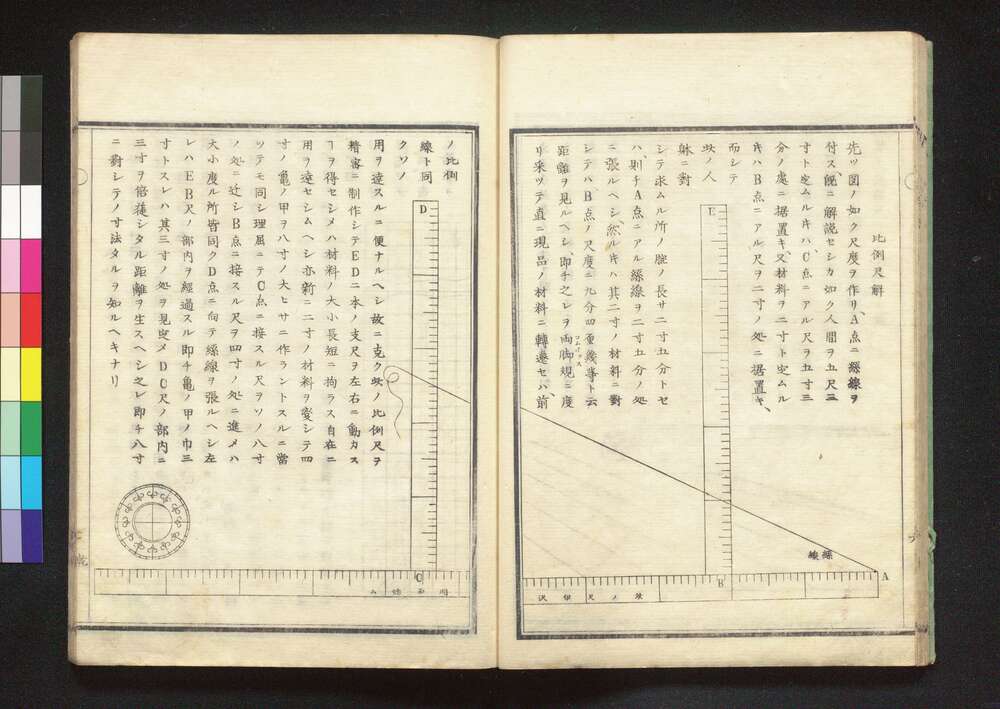 比例尺解
先ツ図ノ如ク尺度ヲ作リ、A点ニ縲線ヲ
付ス、既ニ解説セシカ如ク人間ヲ五尺三
寸ト定ムルキハ、C点ニアル尺ヲ五寸三
分ノ處ニ据置キ、又材料ヲ二寸ト定ムル
キハB点ニアル尺ヲ二寸ノ処ニ据置キ、
而シテ
此ノ人
躰ニ對
シテ求ムル所ノ腔ノ長サ二寸五分トセ
ハ、則チA点ニアル縲線ヲ二寸五分ノ処
ニ張ルヘシ、然ルキハ其二寸ノ材料ニ對
シテハ、B点ノ尺度ニ九分四重幾等ト云
距離ヲ見ルヘシ即チ之レヲ両脚規ニ度
コムパッス
リ来ツテ直ニ現品ノ材料ニ轉遷セハ、前
E
縲線
A
B
ノ比例
線ト同
クソノ
用ヲ達スルニ便ナルヘシ故ニ克ク此ノ比例尺ヲ
精密ニ制作シテED二本ノ支尺ヲ左右ニ動カス
ヿヲ得セシメハ材料ノ大小長短ニ拘ラス自在ニ
用ヲ達セシムヘシ亦新ニ二寸ノ材料ヲ変シテ四
寸ノ亀ノ甲ヲ八寸ノ大ヒサニ作ラントスルニ當
ツテモ同シ理屈ニテC点ニ接スル尺ヲソノ八寸
ノ処ニ近シB点ニ接スル尺ヲ四寸ノ処ニ進メハ
大小度ル所皆同クD点ニ向テ縲線ヲ張ルヘシ左
レハEB尺ノ部内ヲ經過スル即チ亀ノ甲ノ巾三
寸トスレハ其三寸ノ処ヲ見定メDC尺ノ部内ニ
三寸ヲ倍蓰シタル距離ヲ生スヘシ之レ即チ八寸
ニ對シテノ寸法タルヲ知ルヘキナリ
D
C